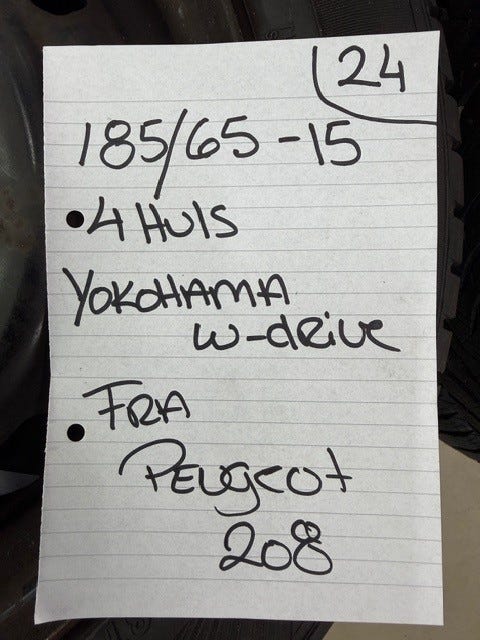 24
185/65-15
4 Huls
YOKOHAMA
W-drive
FRA
PEUgeot
208